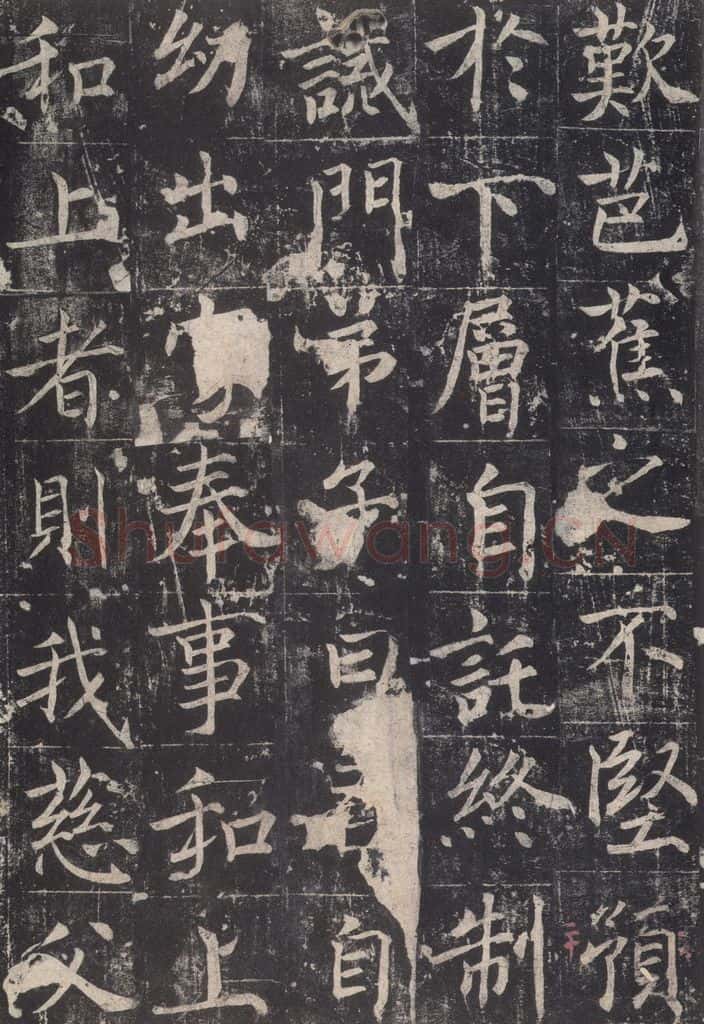 歎芭蕉之不堅預
於下層自託終制
誡門弟子曰吾自
幼出奉事和上
和上者則我慈父
Shufawang.CN